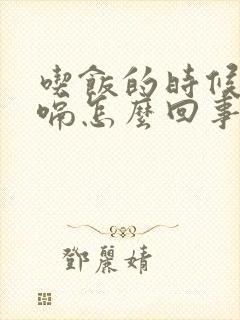 喫飯的時候
喘怎麼回事
鄧麗婧